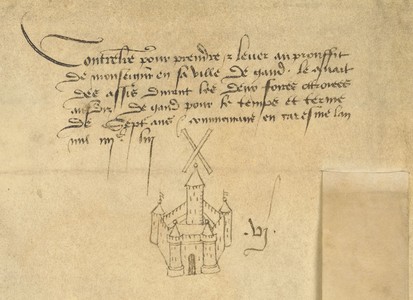 Contrelre pour prendre & lever au prouffit
de monseigneur en sa ville de gand . le quart
des assis durant les deux foires octroiees
ausdis de gand pour le temps et terme
de Sept ans commencans en caresme lan
mil iiijc liij
.vj.